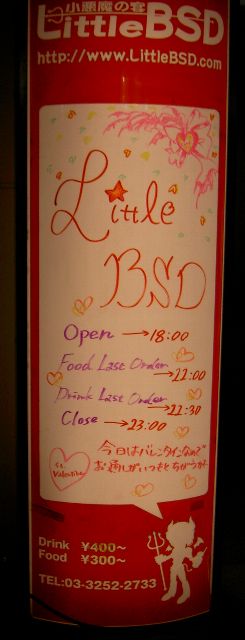 小悪魔の宴
LittleBSD
http://www.LittleBSD.com
Little
BSD
Open →18:00
Food Last Order
→22:00
Drink Last Order
→22:30
Close →23:00
今日はバレンタインなので
お通しがいつもとちがうかも
St.
Valentine
Drink ¥400~
Food ¥300~
TEL:03-3252-2733